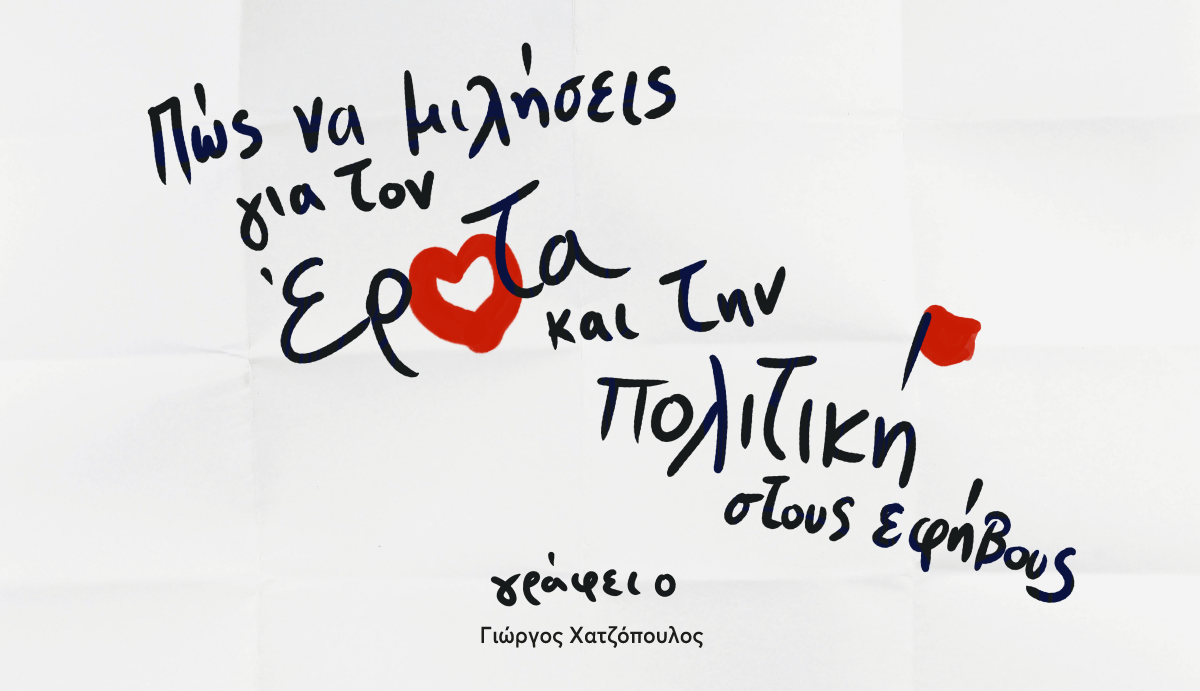 Πώς να μιλήσεις
για τον
Έρωτα
και την
πολιτική
στους εφήβους
γράφει ο
Γιώργος Χατζόπουλος